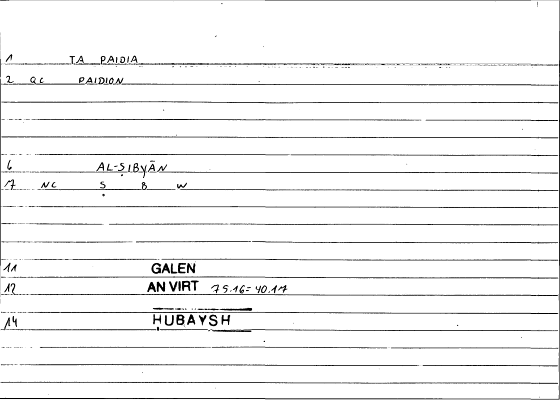 1 TA PAIDIA
2 QC PAIDION
6 AL-ṢIBYĀN
7 NC Ṣ B W
11 GALEN
12 AN VIRT 75.16=40.17
14 ḤUBAYSH